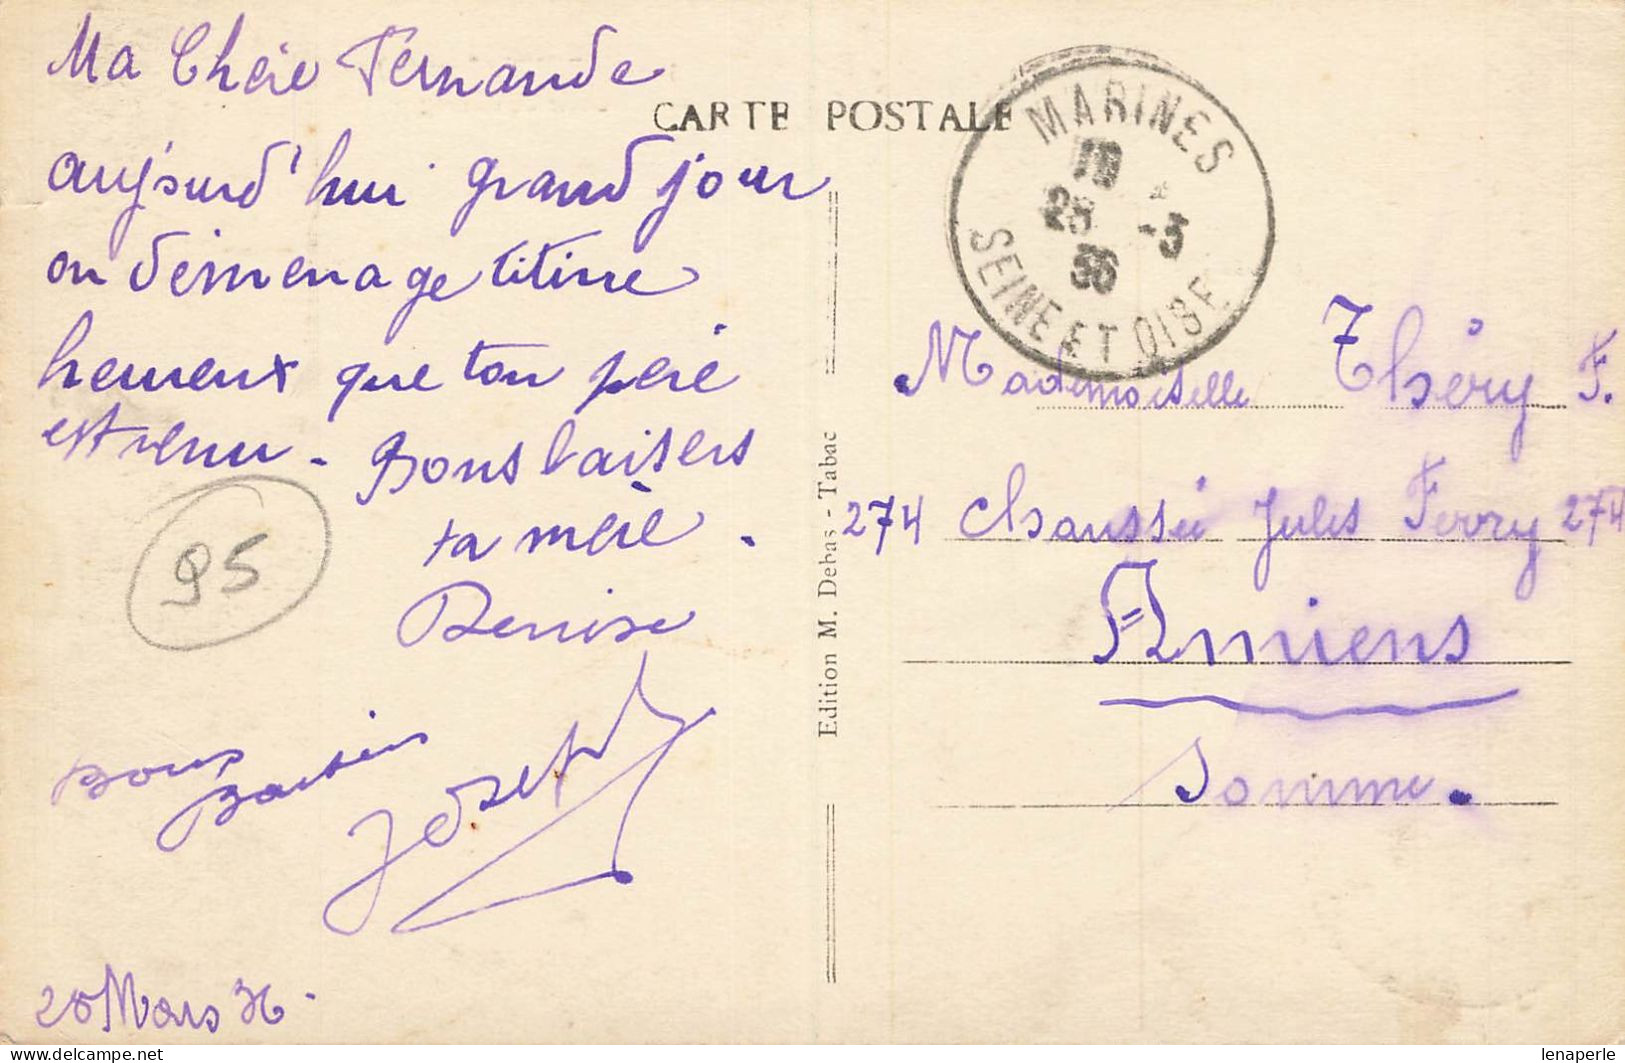 Ma Chère Fernande
aujourd'hui grand jour
on déménage titine
heureux que ton père
est venu. Bons baisers
ta mère.
Denise
95
Bons
Baisers
Joseph
Mars 36.
CARTE POSTALE
Edition M. Debas - Tabac
MARINES
-3
36
SEINE ET OISE
Mademoiselle Théry F.
274 Chaussée Jules Ferry 274
Amiens
Somme.
www.delcampe.net
lenaperle